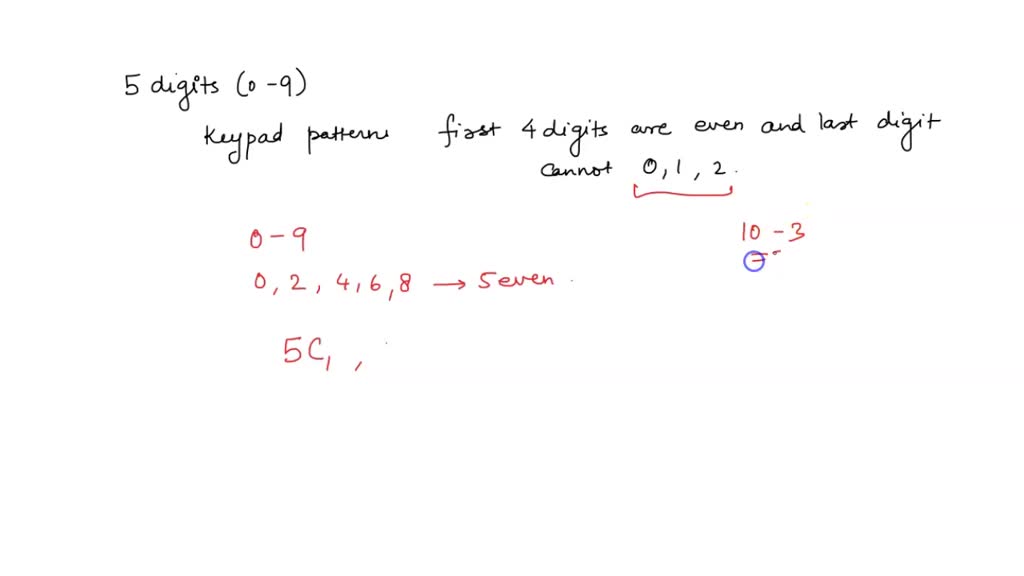 5 digits (0-9)
Keypad patterns first 4 digits are even and last digit
cannot 0, 1, 2.
0-9
10-3
0, 2, 4, 6, 8 → 5 even.
5C1,